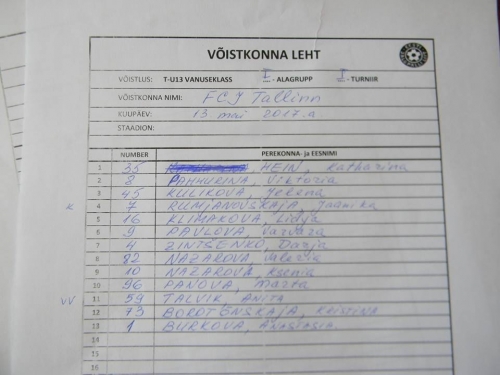 VÕISTKONNA LEHT
VÕISTLUS: T-U13 VANUSEKLASS I - ALAGRUPP I - TURNIIR
VÕISTKONNA NIMI: FCJ Tallinn
KUUPÄEV: 13 mai 2017.a
STAADION:
NUMBER PEREKONNA- ja EESNIMI
1 35 HEIN, Katharina
2 8 PAHHURINA, Viktoria
3 45 KULIKOVA, Jelena
K 4 7 RUMJANOVSKAJA, Jaanika
5 16 KLIMAKOVA, Lidja
6 9 PAVLOVA, Varvara
7 4 ZINTŠENKO, Darja
8 82 NAZAROVA, Valeria
9 10 NAZAROVA, Ksenia
10 96 PANOVA, Marta
VV 11 59 TALVIK, ANITA
12 73 BOROTŠNSKAJA, KRISTINA
13 1 BURKOVA, ANASTASIA
14
15
16